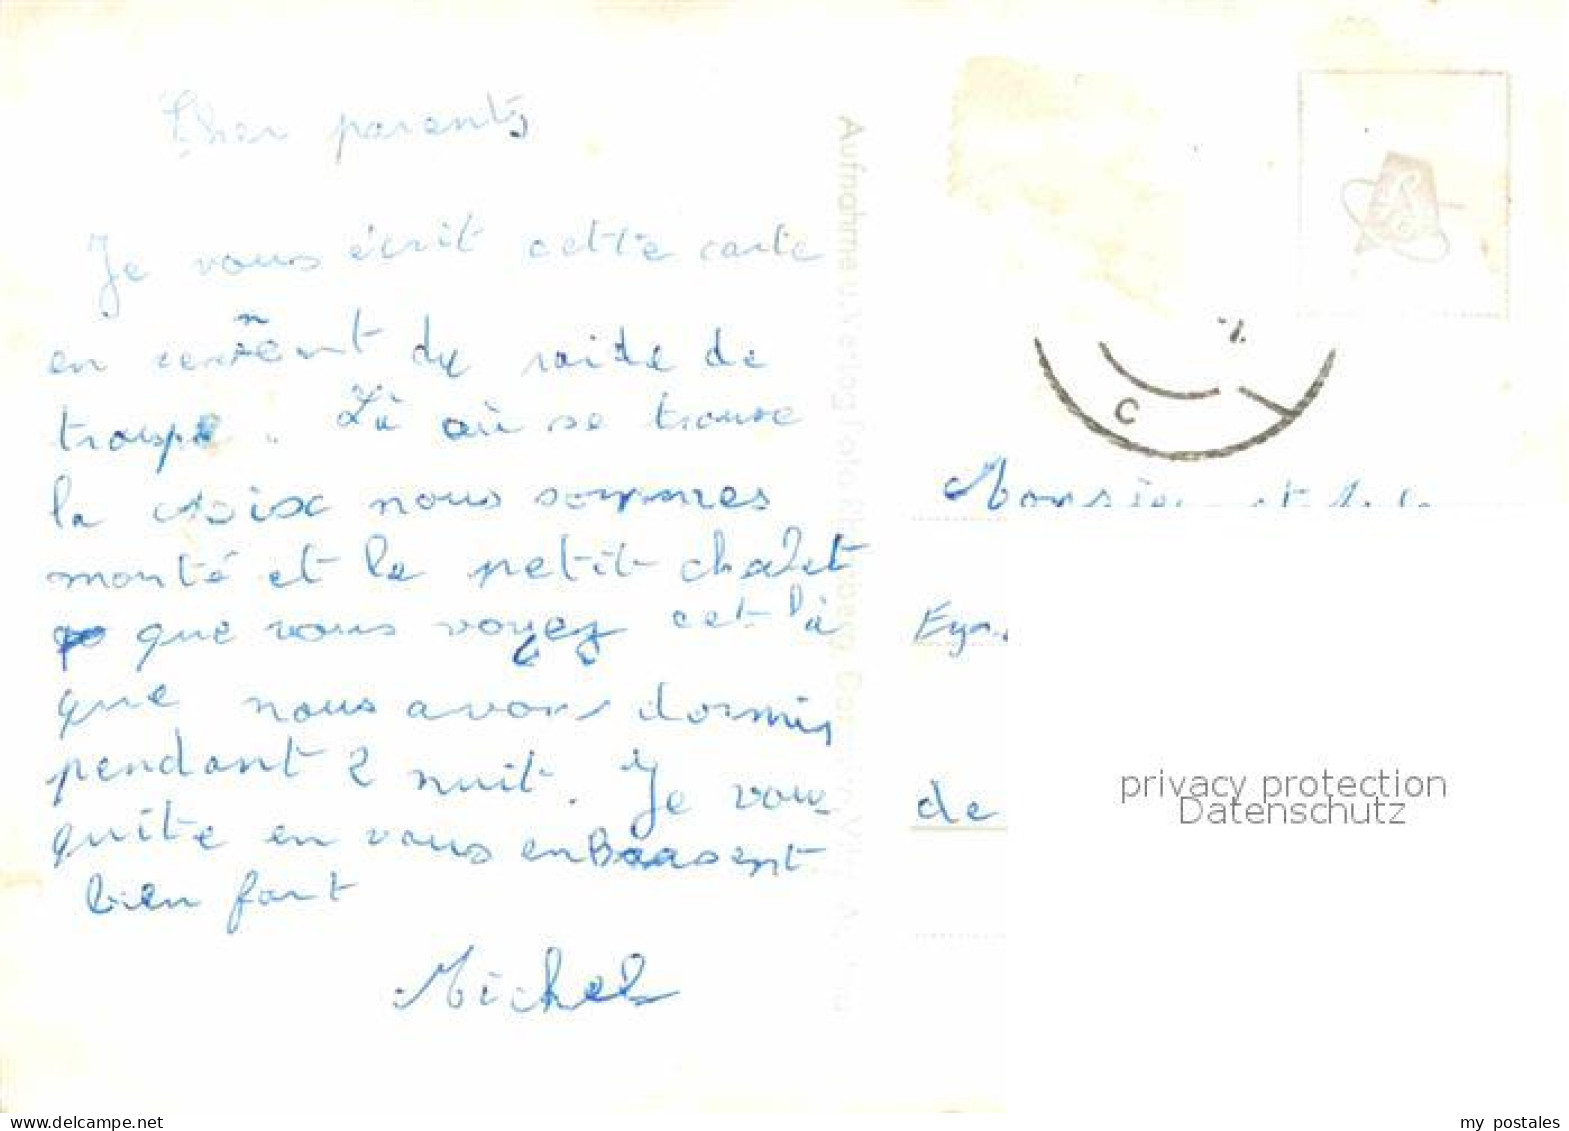 Cher parents
Je vous écrit cette carte
en du raide de
troupe. Là où se trouve
la croix nous sommes
monté et le petit chalet
que vous voyez cet là
que nous avons dormis
pendant 2 nuit. Je vous
quite en vous enbrasent
bien fort
Michel
Aufnahme u. Verlag Foto
C
Monsieur et
de
privacy protection
Datenschutz
www.delcampe.net
my postales